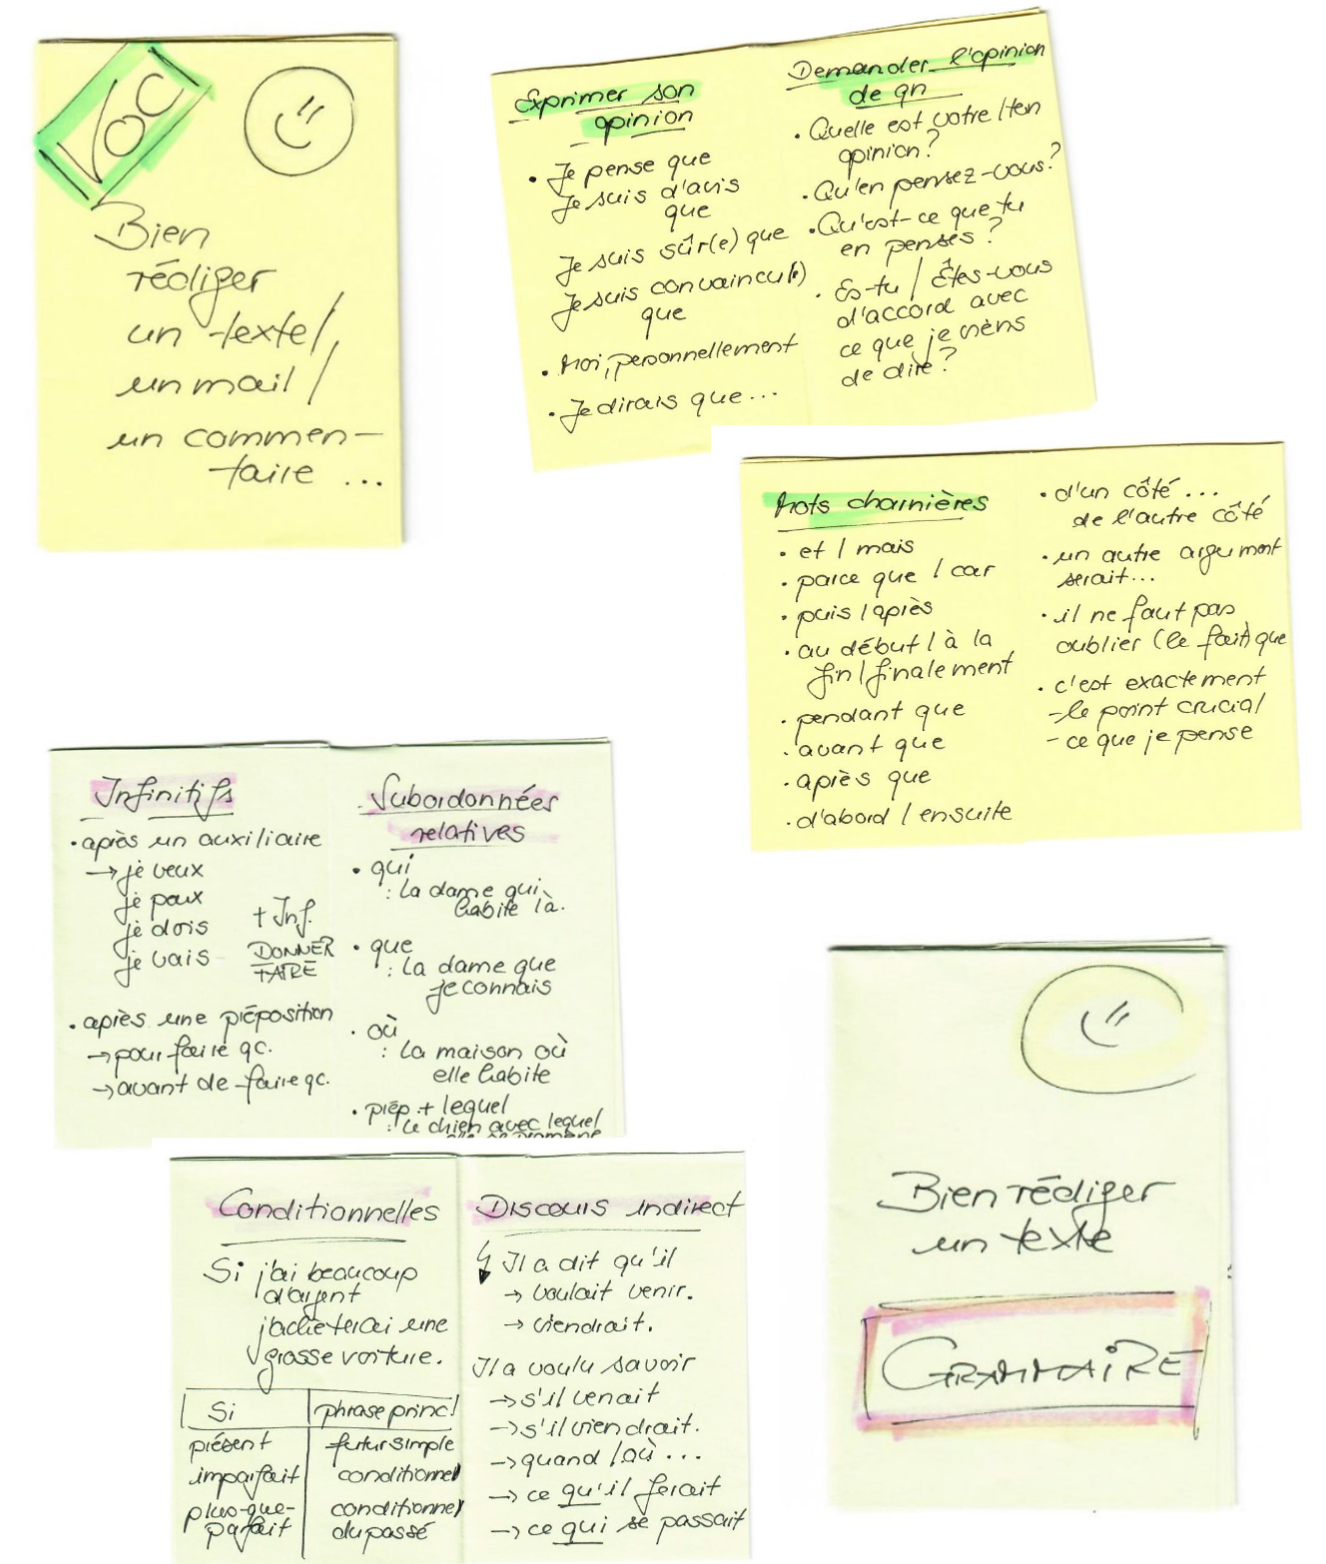 VOC
Bien
rédiger
un texte/
un mail/
un commen-
taire ...
Exprimer son
opinion
• Je pense que
Je suis d'avis
que
Je suis sûr(e) que
Je suis convaincu(e)
que
• Moi, personnellement
• Je dirais que...
Demander l'opinion
de qn
• Quelle est votre/ton
opinion?
• Qu'en pensez-vous?
• Qu'est-ce que tu
en penses?
• Es-tu / Êtes-vous
d'accord avec
ce que je viens
de dire?
Mots charnières
• et / mais
• parce que / car
• puis / après
• au début / à la
fin / finalement
• pendant que
• avant que
• après que
• d'abord / ensuite
• d'un côté ...
de l'autre côté
• un autre argument
serait...
• il ne faut pas
oublier (le fait) que
• c'est exactement
- le point crucial
- ce que je pense
Infinitifs
• après un auxiliaire
→ je veux
je peux
je dois + Inf.
je vais DONNER
FAIRE
• après une préposition
→ pour faire qc.
→ avant de faire qc.
Subordonnées
relatives
• qui
: la dame qui
habite là.
• que
: la dame que
je connais
• où
: la maison où
elle habite
• prép. + lequel
: le chien avec lequel
elle se promène
Conditionnelles
Si j'ai beaucoup
d'argent
j'achèterai une
grosse voiture.
Si phrase princ.
présent futur simple
imparfait conditionnel
plus-que- conditionnel
parfait du passé
Discours indirect
Il a dit qu'il
→ voulait venir.
→ viendrait.
Il a voulu savoir
→ s'il venait
→ s'il viendrait.
→ quand / où ...
→ ce qu'il ferait
→ ce qui se passait
Bien rédiger
un texte
GRAMMAIRE